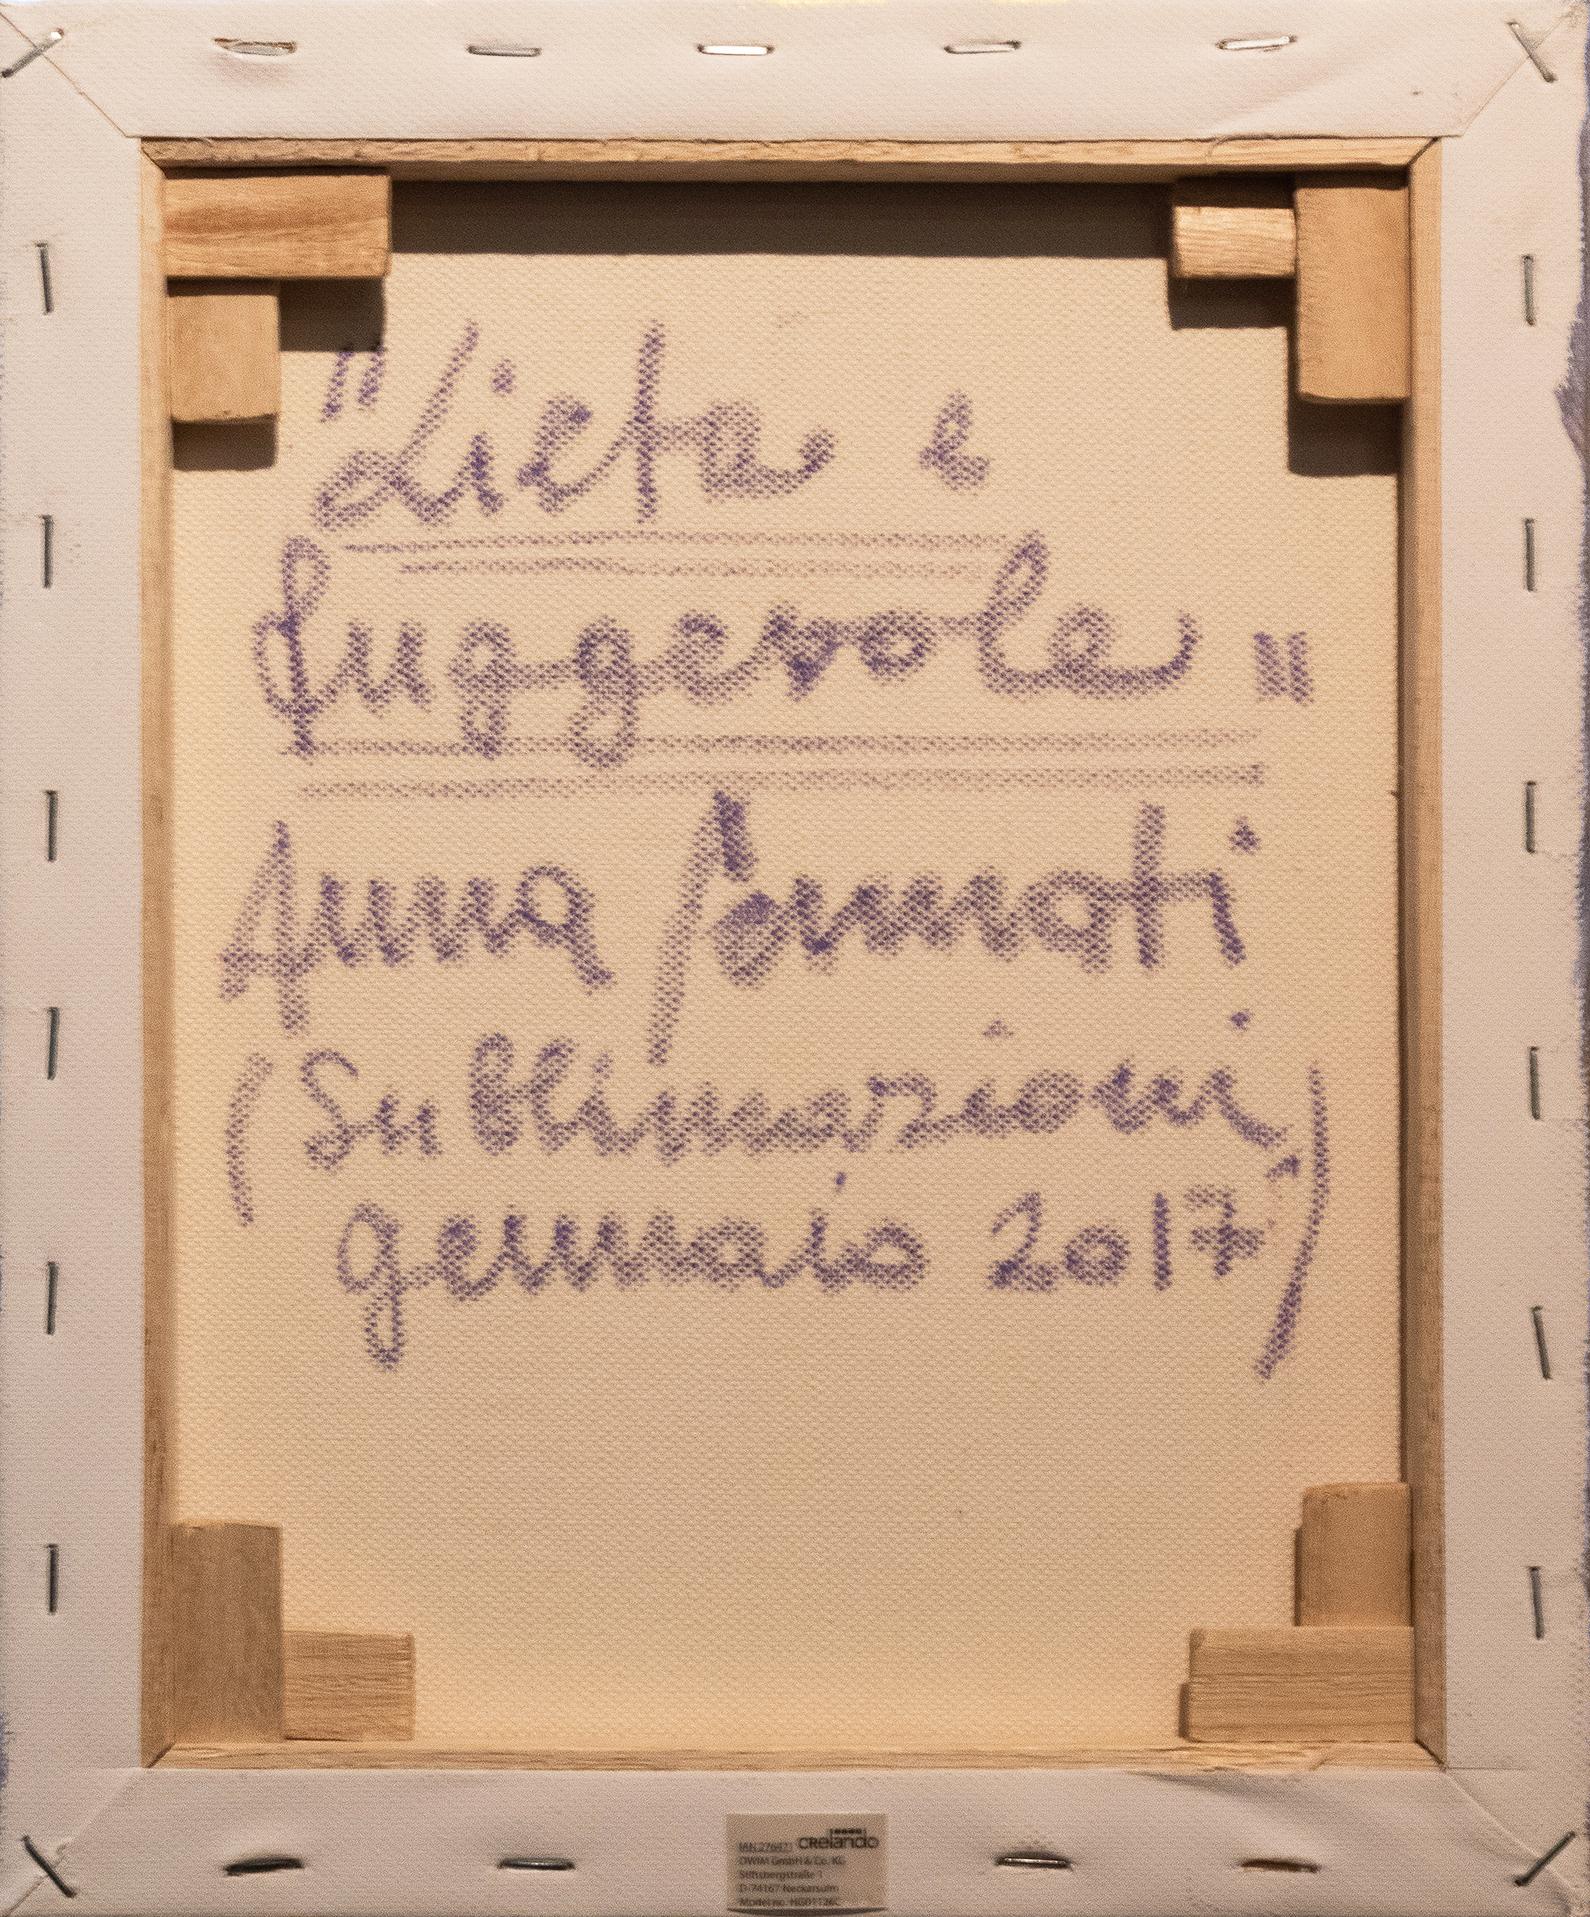 "Lieta e
fuggevole"
Anna
(Sublimazioni
gennaio 2017)
CRelando
IAN 276471
OWIM GmbH & Co. KG
Stiftsbergstraße 1
D-74167 Neckarsulm
Model no.